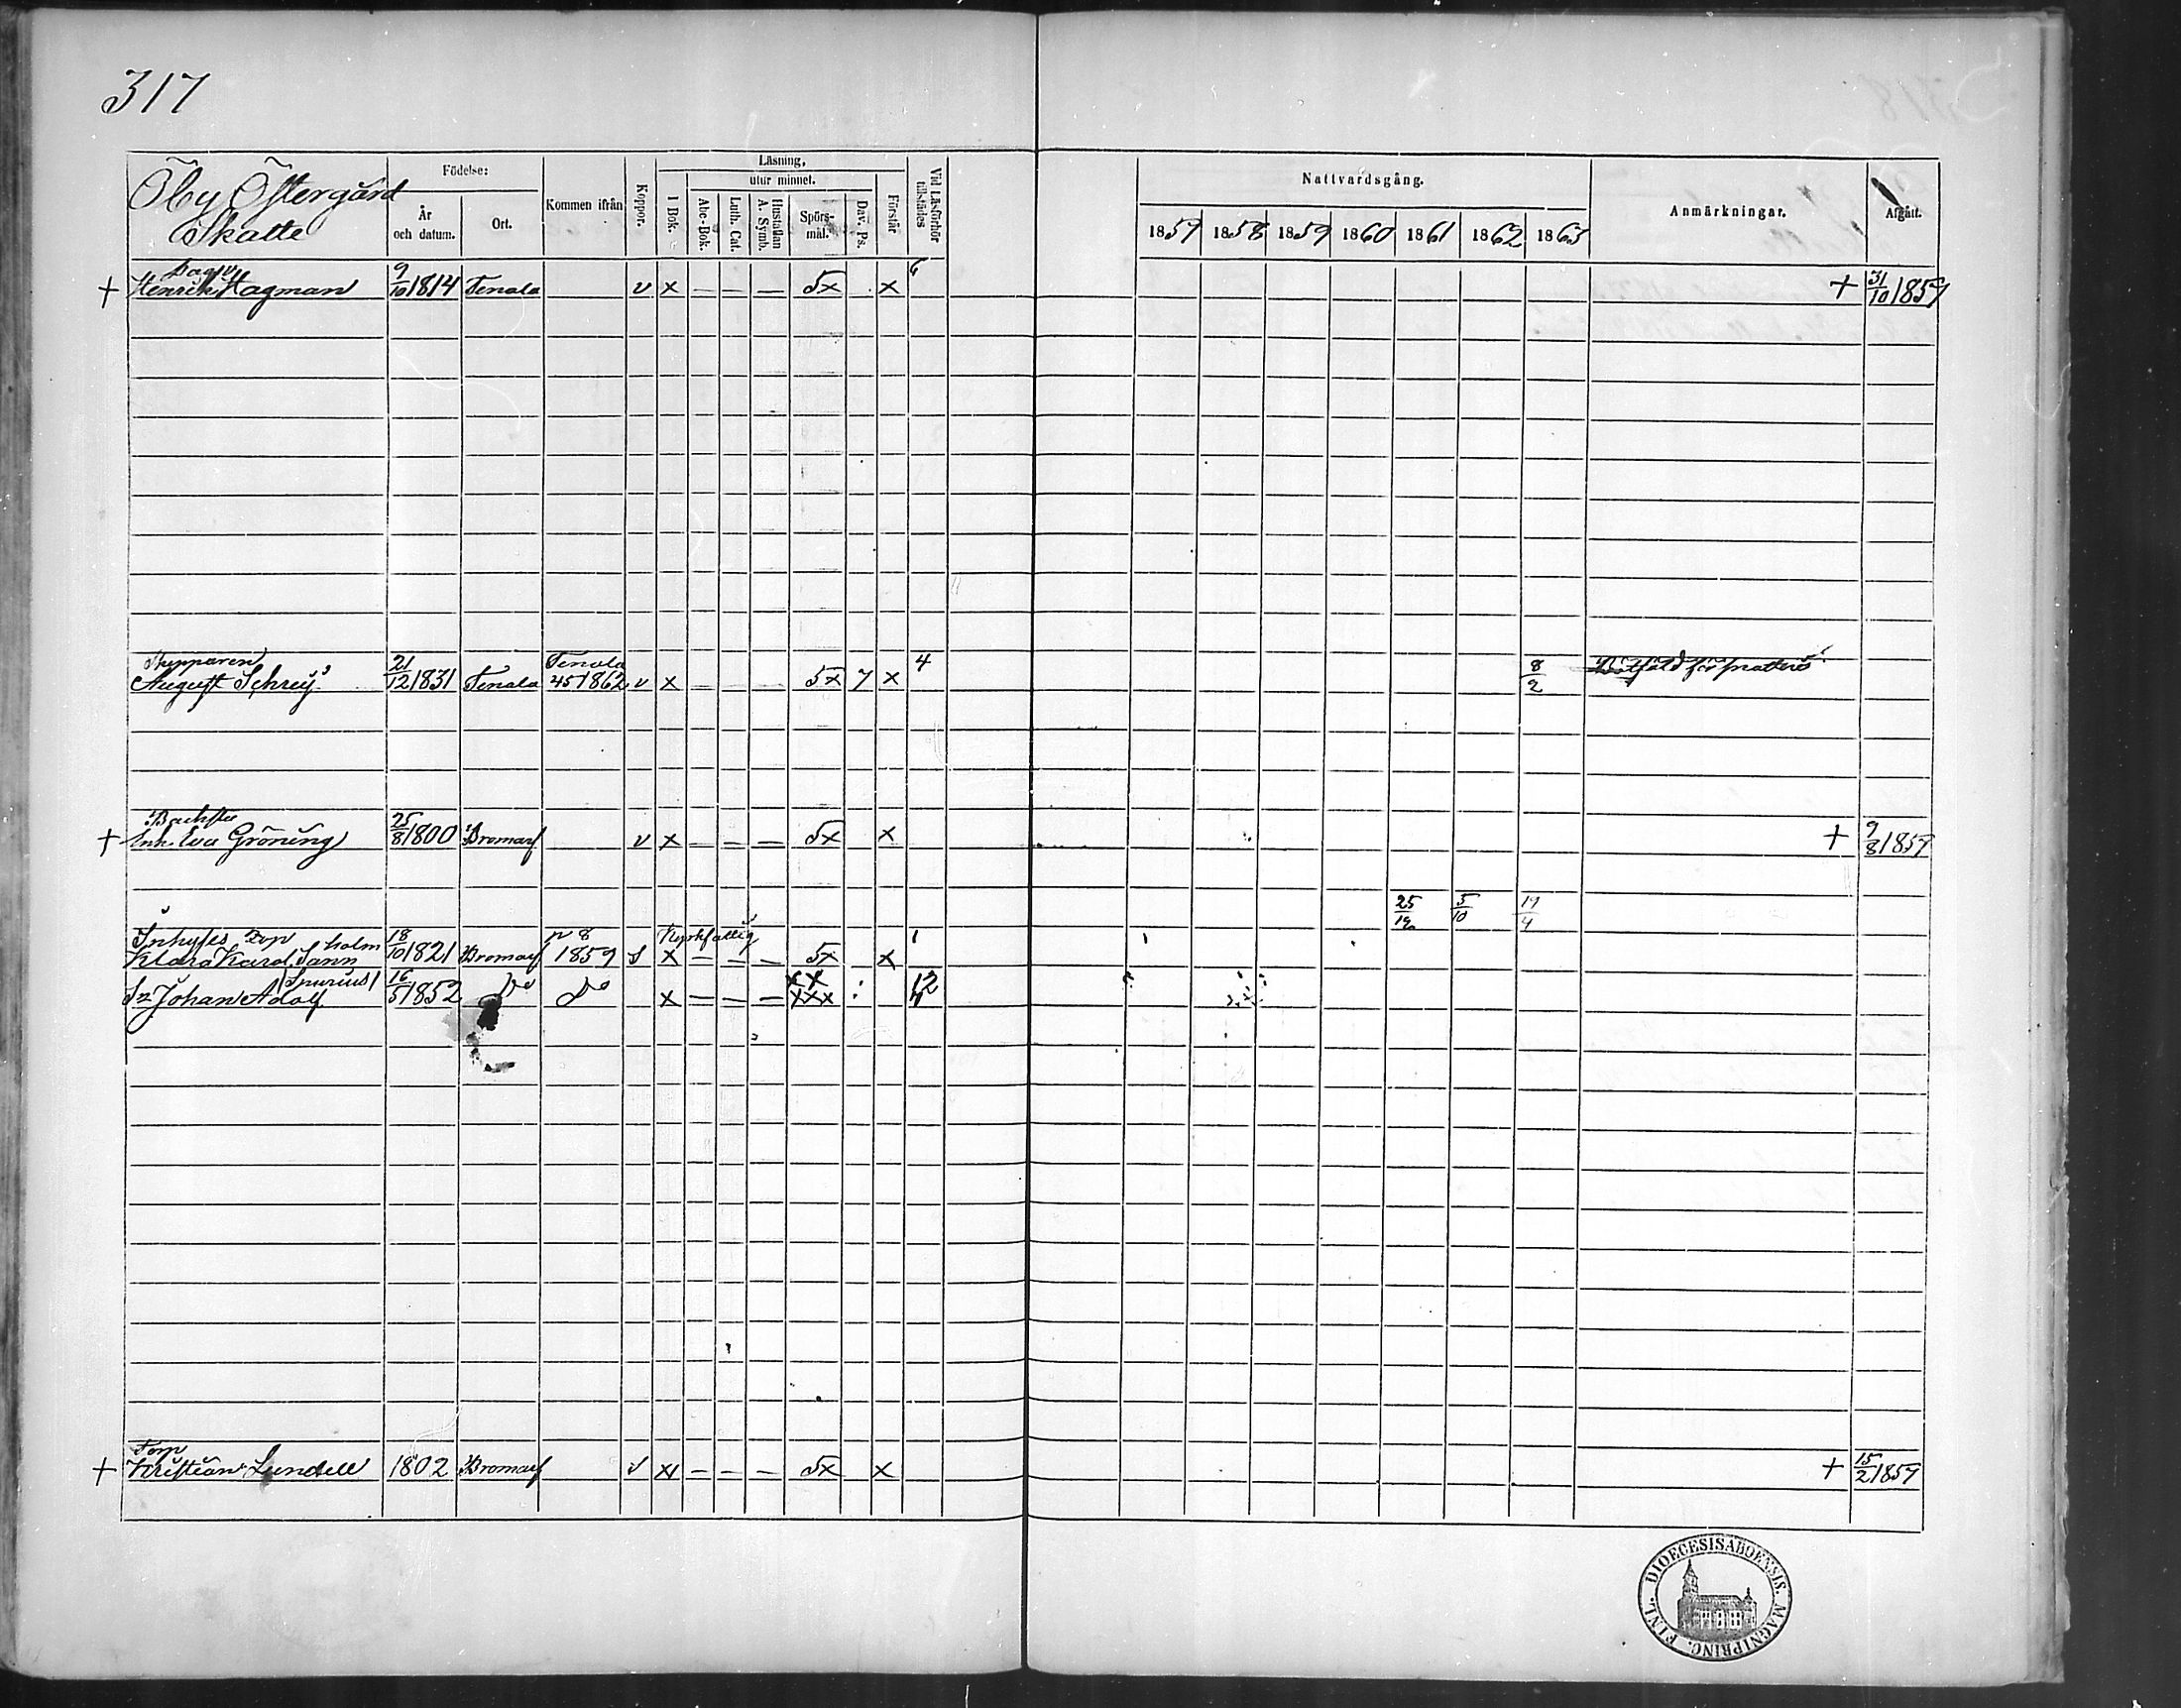 317
Öby Östergård
Skatte
Födelse:
År
och datum.
Ort.
Kommen ifrån
Koppor.
Läsning,
I Bok.
utur minnet.
Abc-Bok.
Luth. Cat.
Hustaflan
A. Symb.
Spörs-
mål.
Dav. Ps.
Förstår
Vid Läsförhör
tillstädes
Nattvardsgång.
1857 1858 1859 1860 1861 1862 1863
Anmärkningar.
Afgått.
+ Henrik Hagman 9/10 1814 Tenala v x — — — 5x x 6 + 31/10 1857
Skepparen Tenala
August Schrey 21/12 1831 Tenala 45 1862 v x — — — 5x 7 x 4 8/2
+ Enk. Eva Gröning 25/8 1800 Bromarf v x — — — 5x x + 9/8 1857
25/12 5/10 19/4
Inhyses holm n 8 Kyrkfattig
Klara Karol. Sann 18/10 1821 Bromarf 1859 x — — — 5x x 1
Spurius
Sn Johan Adolf 16/5 1852 Do Do x — — — xx xxx 12
Torp
+ Kristian Lundell 1802 Bromarf x — — — 5x x + 15/2 1857
FINL. DIOECESIS ABOENSIS. MAGNI PRINC.